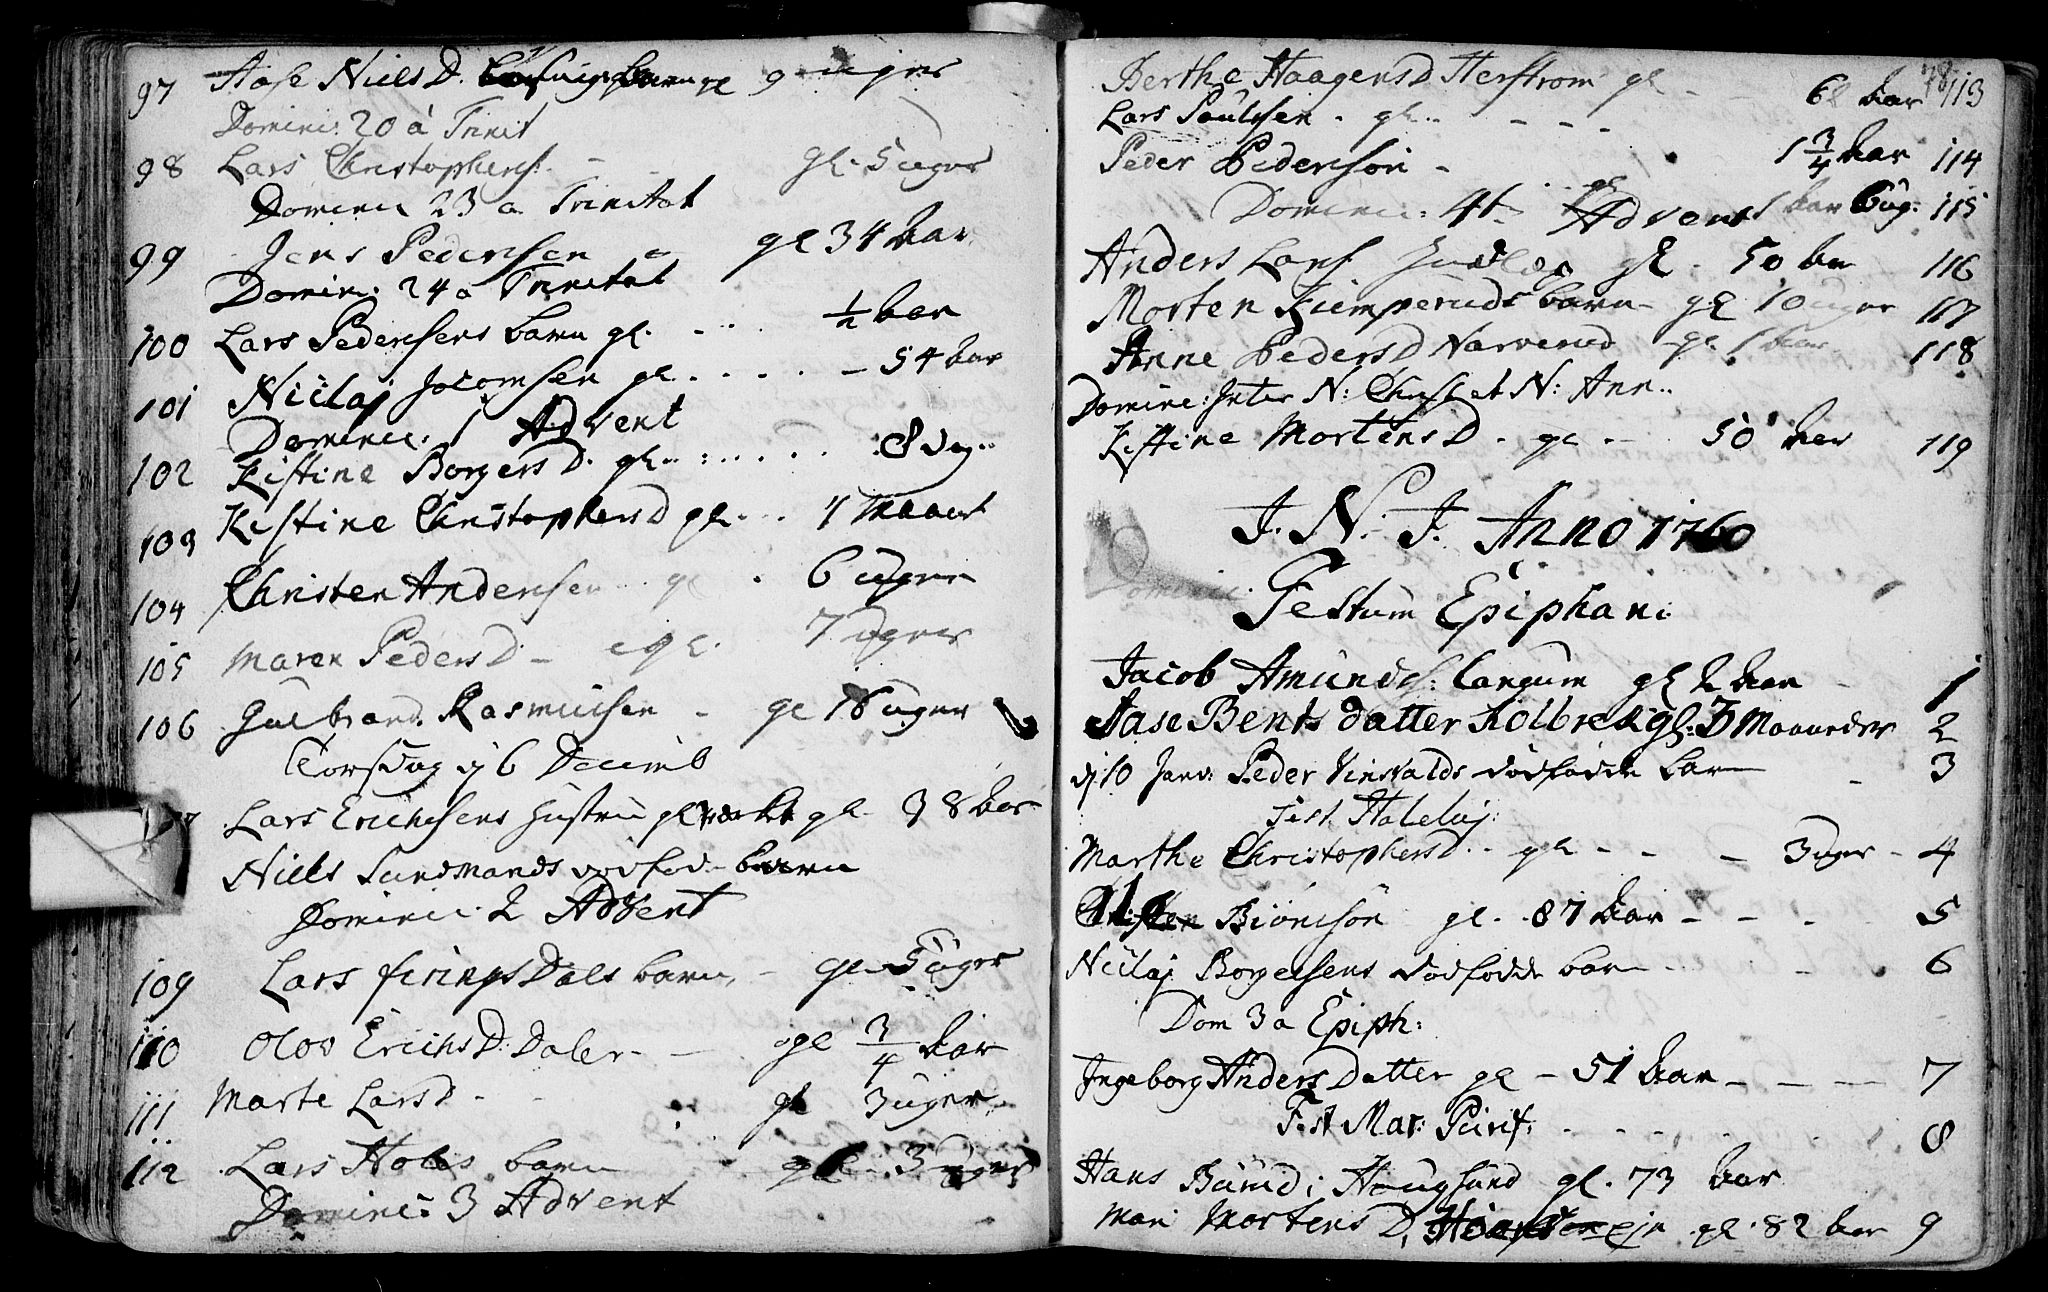 97 Aase Niels D. gl 9 uger
Dominic: 20 a Trinit
98 Lars Christophers. - gl. 5 uger
Dominic 23 a Trinitat
99 Jens Pedersen gl 34 aar
Dominic: 24 a Trinitat
100 Lars Pedersens barn gl. ½ aar
101 Nicilaj Jocomsen gl. 54 aar
Dominic. 1 Advent
102 Kistine Borgers D. gl. 8 dag.
103 Kistine Christophers D gl. 1 Maanet
104 Christen Andersen gl. 6 uger
105 Maren Peders D - gl. 7 uger
106 Gulbrand Rasmussen - gl 16 uger
Torsdag d. 6 Decemb
Lars Erichsens Hustru gl. 38 aar
Niels Sandmands dødfød barn
Dominic. 2 Advent
109 Lars firingsDals barn - gl. 5 uger
110 Olov Erichs D: Daler - gl ¾ aar
111 Marte Lars D - gl 3 uger
112 Lars Holes barn gl. 3 uger
Dominic: 3 Advent
78
Berthe Haagens D Herstrom gl - 6 aar 113
Lars Poulsen - gl.
Peder Pedersøn - 1 ¾ aar 114
Dominic: 4t Advent 1 aar 6 ug: 115
Anders Lars. gl. 50 aar 116
Morten Kiemperuds barn - gl 10 uger 117
Anne Peders D Narverud - gl. 1 aar 118
Dominic: Inter N: Christ et N: Ann.
Kistine Mortens D. gl. - 50 aar 119
J. N. J. Anno 1760
Dominic:
Festum Epiphani:
Jacob Amunds: Langum gl 2 aar - 1
Aase Bents datter Kolbrek gl: 3 Maaneder 2
d. 10 Janv: Peder Vinsvalds dødfødde barn - 3
Marthe Christophers D. - gl - 3 uger - 4
Biönsön gl. 87 aar - 5
Nicilaj Borgersens dødfødde barn - 6
Dom 3 a Epiph:
Ingeborg Anders Datter gl - 51 aar - 7
Fest Mar: Purif: 8
Hans Haugsund gl. 73 aar
Mari Mortens D. gl. 82 aar 9